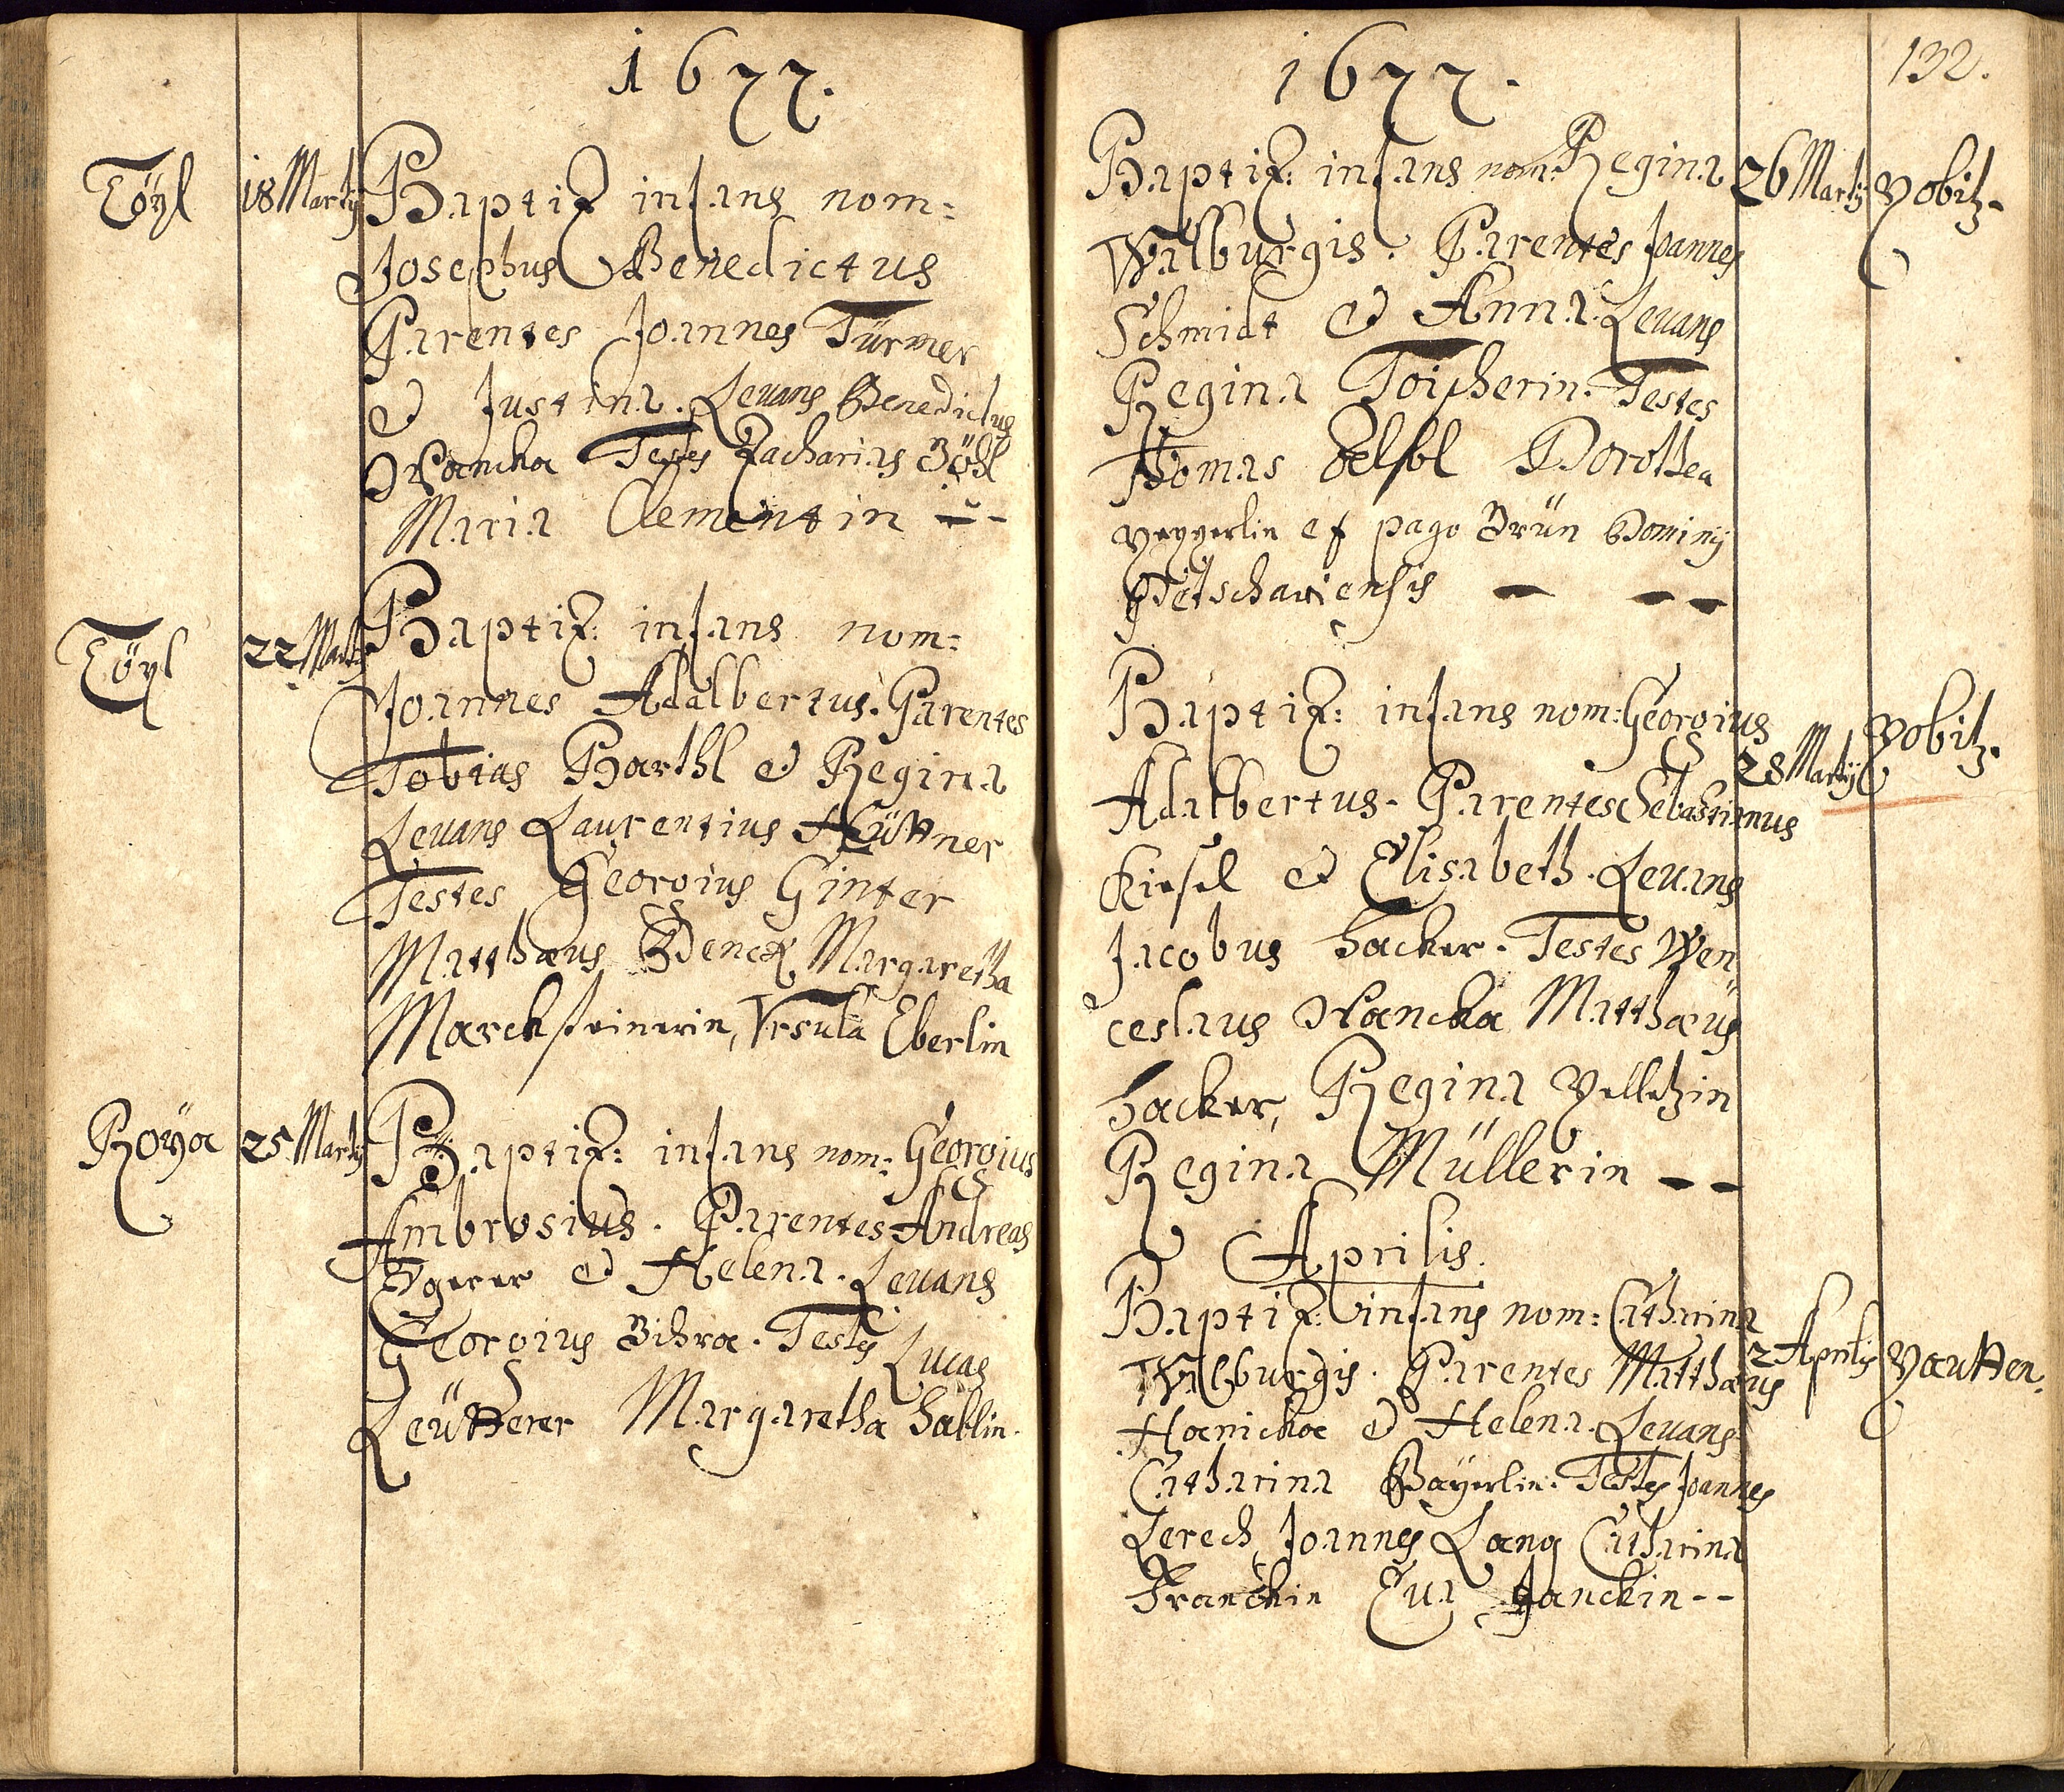 1677.
Töyl
18 Martij
Baptiz infans nom:
Josephus Benedictus
Parentes Joannes Türmer
et Justina. Levans Benedictus
Wancka Testes Zacharias Böhl
Maria Clementin
Töyl
22 Martij
Baptiz: infans nom:
Joannes Adalbertus. Parentes
Tobias Barthl et Regina
Levans Laurentius Hüttner
Testes Georgius Ginter
Matthæus Denck Margaretha
Marcksteinerin, Vrsula Eberlin
Roya
25 Martij
Baptiz: infans nom: Georgius
Ambrosius. Parentes Andreas
Egerer et Helena. Levans
Georgius Bihra. Testes Lucas
Leütterer Margaretha Hablin.
1677.
132.
Baptiz: infans nom: Regina
26 Martij
Walburgis. Parentes Joannes
Schmidt et Anna. Levans
Regina Toipherin. Testes
Thomas Dorothea
ex pago Brün Dominij
Petschaviensis
Baptiz: infans nom: Georgius
28 Martij
Adalbertus. Parentes Sebastianus
Kiesel et Elisabeth. Levans
Jacobus Hacker. Testes Wen
ceslaus Wancka Matthæus
Hacker, Regina
Regina Müllerin
Aprilis.
Baptiz: infans nom: Catharina
2 Aprilis
Walburgis. Parentes Matthæus
Hanicka et Helena. Levans
Catharina Bayerlin. Testes Joannes
Lerech, Joannes Lang Catharina
Franckin Eva Janckin